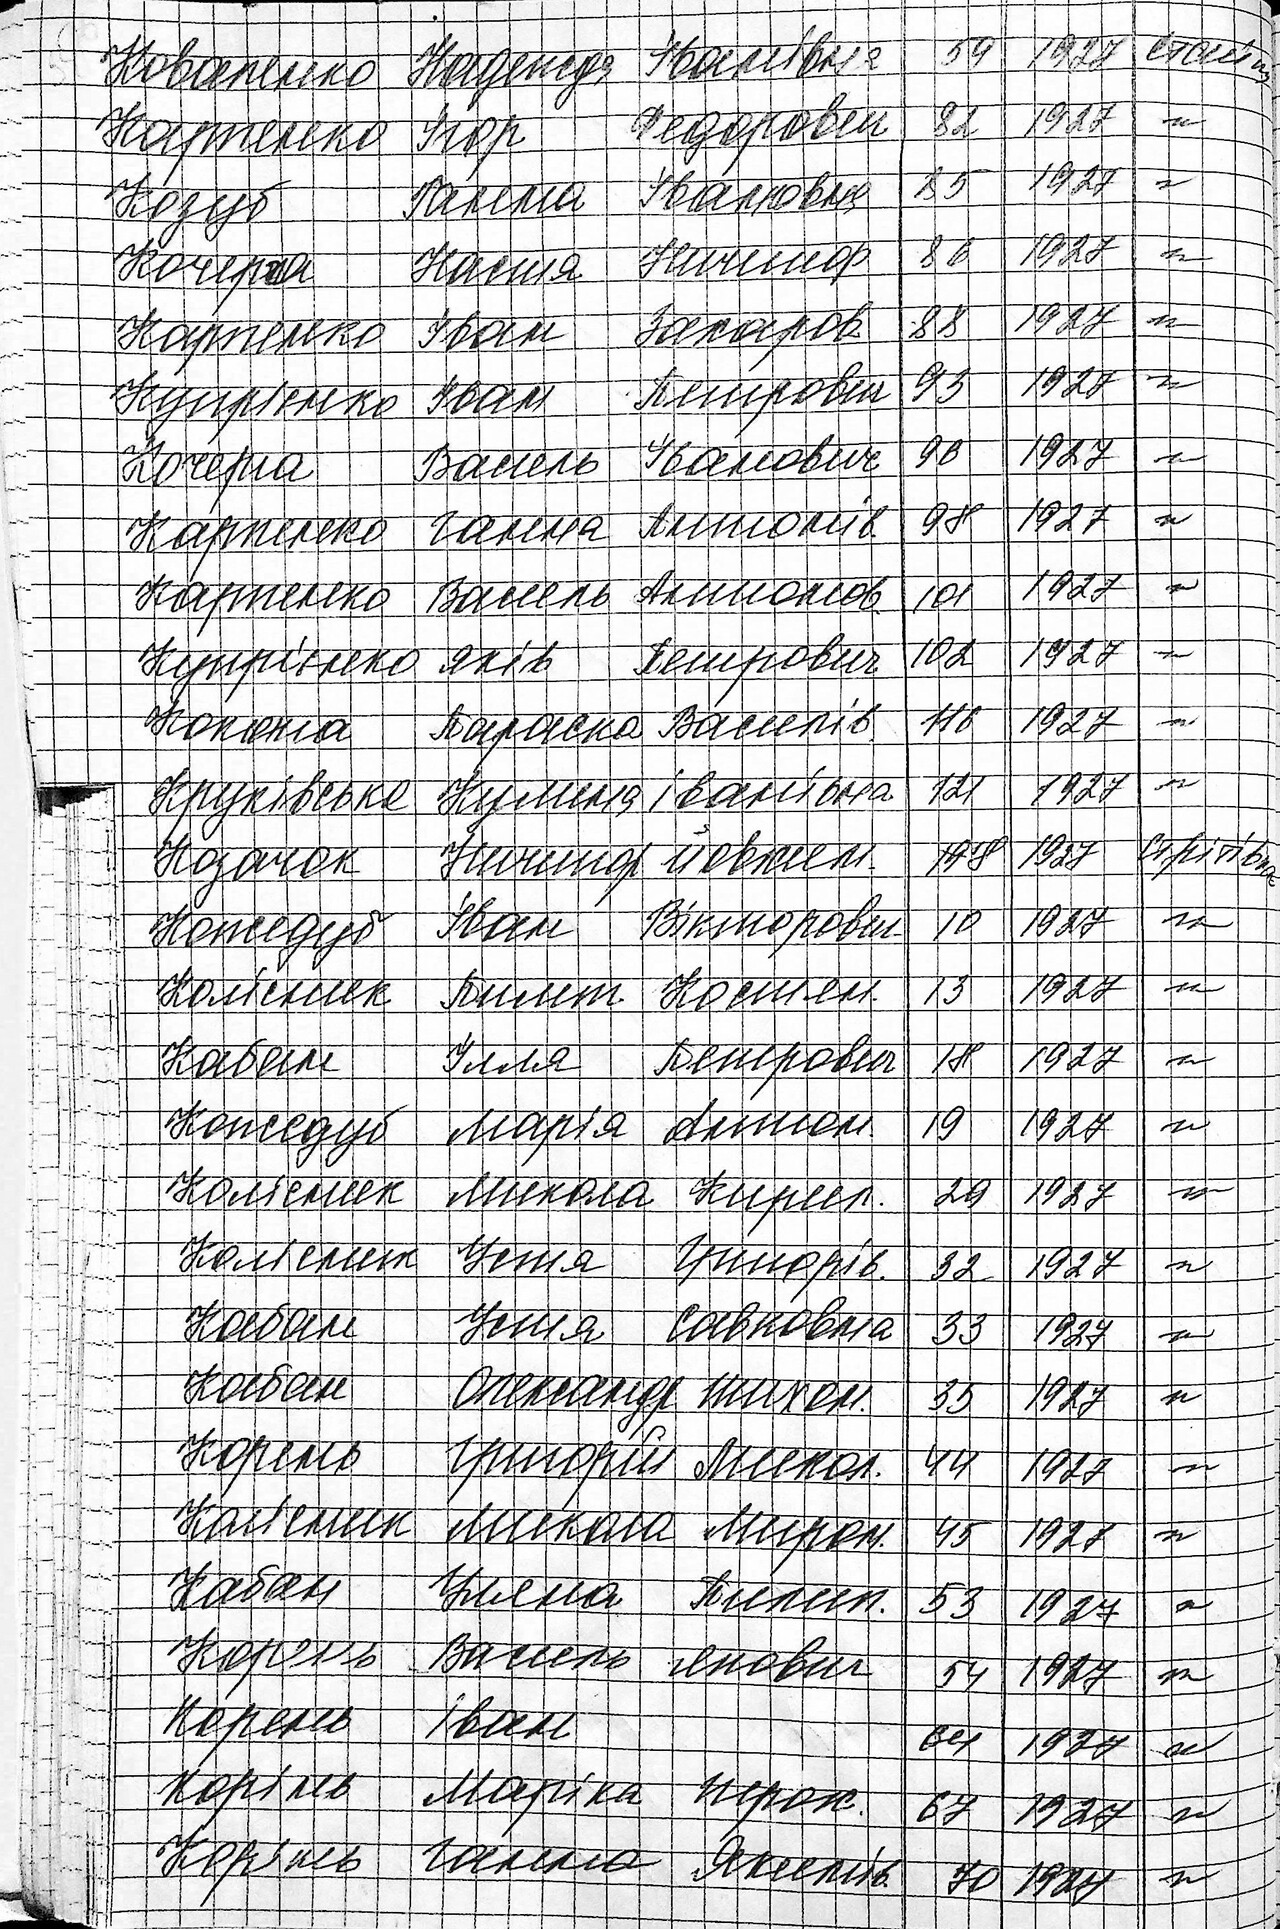 Коваленко Надежда Іванівна 59 1927
Карпенко Ігор Федорович 82 1927 "
Козуб Ганна Івановна 85 1927 "
Кочерга Настя Ничипор 86 1927 "
Карпенко Іван Захаров 88 1927 "
Купрієнко Іван Петрович 93 1927 "
Кочерга Василь Іванович 96 1927 "
Карпенко Ганна Антонів. 98 1927 "
Карпенко Василь Антонов 101 1927 "
Купрієнко Яків Петрович 102 1927 "
Параска Василів. 116 1927 "
Круківська Кулина Іванівна 121 1927 "
Козачок Ничипор 1927
Кожедуб Іван Вікторович 10 1927 "
Колісник Пилип Костян. 13 1927 "
Кабан Ілля Петрович 18 1927 "
Кожедуб Марія Антон. 19 1927 "
Колісник Микола Кирил. 29 1927 "
Колісник Устя Григорів. 32 1927 "
Кабан Устя Савковна 33 1927 "
Кабан Олександр Тихон. 35 1927 "
Корень Григорій Микол. 44 1927 "
Колісник Микола Мирон. 45 1927 "
Кабан Уляна Пилип. 53 1927 "
Корень Василь Якович 54 1927 "
Корень Іван 64 1927 "
Корінь Маріка 67 1927 "
Корінь Ганна 70 1927 "